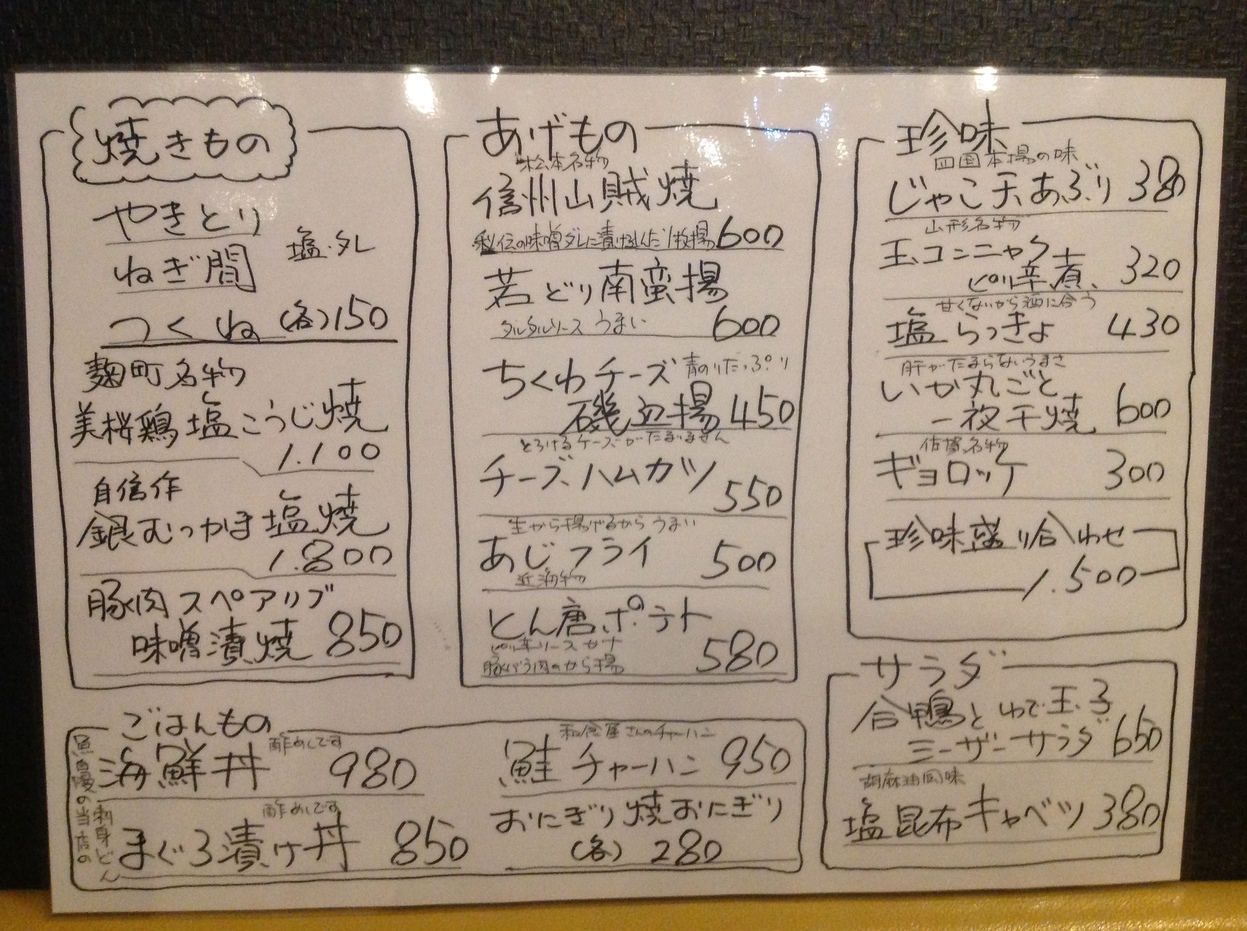 焼きもの
やきとり
ねぎ間
塩・タレ
つくね (各)150
麹町名物
美桜鶏塩こうじ焼
1.100
自信作
銀むつかま塩焼
1.800
豚肉スペアリブ
味噌漬焼 850
あげもの
松本名物
信州山賊焼
秘伝の味噌ダレに漬け込んだ1枚揚 600
若どり南蛮揚
タルタルソースうまい 600
ちくわチーズ 青のりたっぷり
磯辺揚 450
とろけるチーズがたまりません
チーズハムカツ
550
生から揚げるからうまい
あじフライ 500
近海物
とん唐ポテト
ピリ辛ソースカナ
豚バラ肉のから揚 580
珍味
四国本場の味
じゃこ天あぶり 380
山形名物
玉コンニャク
ピリ辛煮 320
甘くないから酒に合う
塩らっきょ 430
肝がたまらないうまさ
いか丸ごと
一夜干焼 600
佐賀名物
ギョロッケ 300
珍味盛り合わせ
1.500
サラダ
合鴨とゆで玉子
シーザーサラダ 650
胡麻油風味
塩昆布キャベツ 380
ごはんもの
魚自慢の当店の
刺身どん
酢めしです
海鮮丼 980
酢めしです
まぐろ漬け丼 850
和食屋さんのチャーハン
鮭チャーハン 950
おにぎり 焼おにぎり
(各) 280